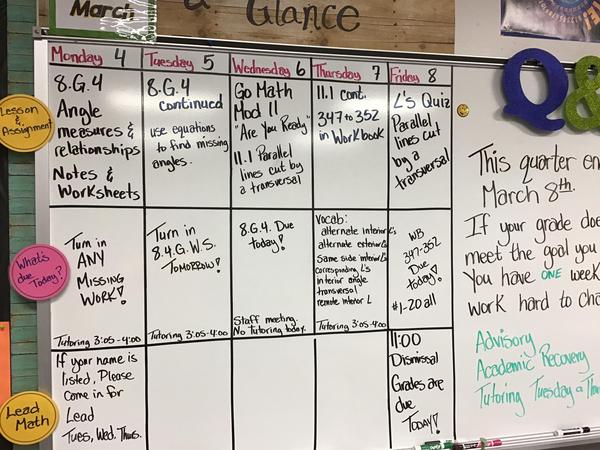 March
a Glance
Monday 4
Tuesday 5
Wednesday 6
Thursday 7
Friday 8
Lesson
& Assignment
8.G.4
Angle
measures &
relationships
Notes &
Worksheets
8.G.4
continued
use equations
to find missing
angles.
Go Math
Mod 11
"Are You Ready"
11.1 Parallel
lines cut by
a transversal
11.1 cont.
347 to 352
in Workbook
L's Quiz
Parallel
lines cut
by a
transversal
What's
due Today?
Turn in
ANY
MISSING
WORK!
Tutoring 3:05-4:00
Turn in
8.4.G.W.S.
TOMORROW!
Tutoring 3:05-4:00
8.G.4. Due
today!
Staff meeting.
No tutoring today.
Vocab:
alternate interior L's
alternate exterior L's
Same side interior L's
corresponding L's
interior angle
transversal
remote interior L
Tutoring 3:05-4:00
WB
347-352
Due
today!
#1-20 all
Lead
Math
If your name is
listed, Please
come in for
Lead
Tues, Wed. Thurs.
11:00
Dismissal
Grades are
due
TODAY!
Q&
This quarter en
March 8th.
If your grade doe
meet the goal you
You have ONE week
work hard to cha
Advisory
Academic Recovery
Tutoring Tuesday & Thur